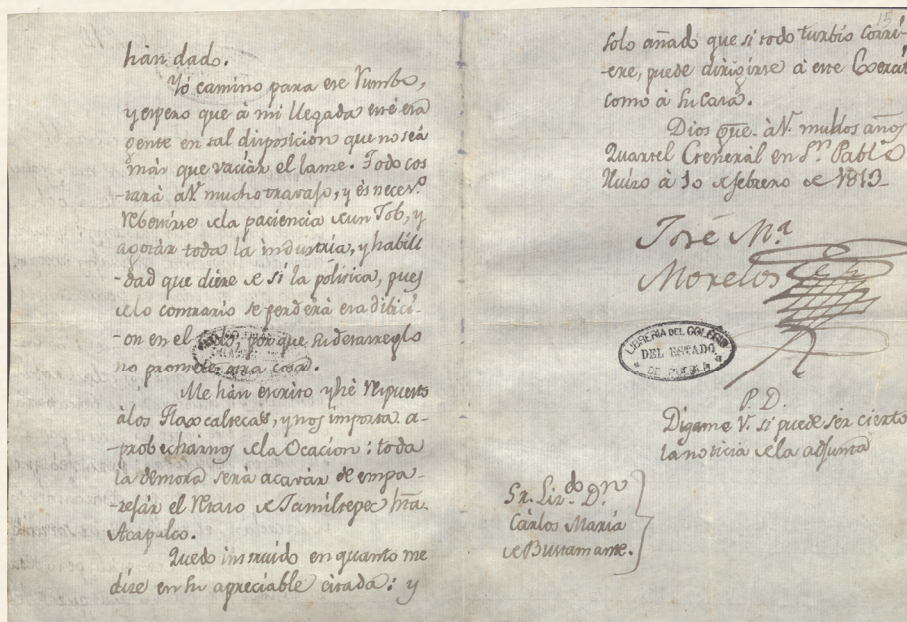 han dado.
Yó camino para ese Rumbo,
y espero que à mi llegada esté esa
gente en tal disposicion que no seá
más que vaciár el lame. Todo cos
-tará à V. mucho travajo, y és neces.º
rebestirse de la paciencia de un Job, y
agotár toda la industria, y habili
-dad que diere de sí la política, pues
de lo contrario se perderá esa divici-
-on en el todo, porque su desarreglo
no promete otra cosa.
Me han escrito y hé respuesto
à los Tlaxcaltecas, y nos importa a-
-probechárnos de la Ocacion: toda
la demora será acavár de empa-
-rejár el Resto de Jamiltepec hta.
Acapulco.
Quedo instruido en quanto me
dize en su apreciable citada: y
15
solo añado que si todo turbio corri-
-ere, puede dirigirse à este Exercit
como à su Casa.
Dios gue. à V. muchos años
Quartel General en Sn. Pablo
Huizo à 10 de febrero de 1813-
José Ma.
Morelos
LIBRERIA DEL COLEGIO
DEL ESTADO
DE PUEBLA
P. D.
Digame V. si puede ser cierto
la noticia de la adjunta
Sr. Liz.do Dn
Cárlos María
de Bustamante.